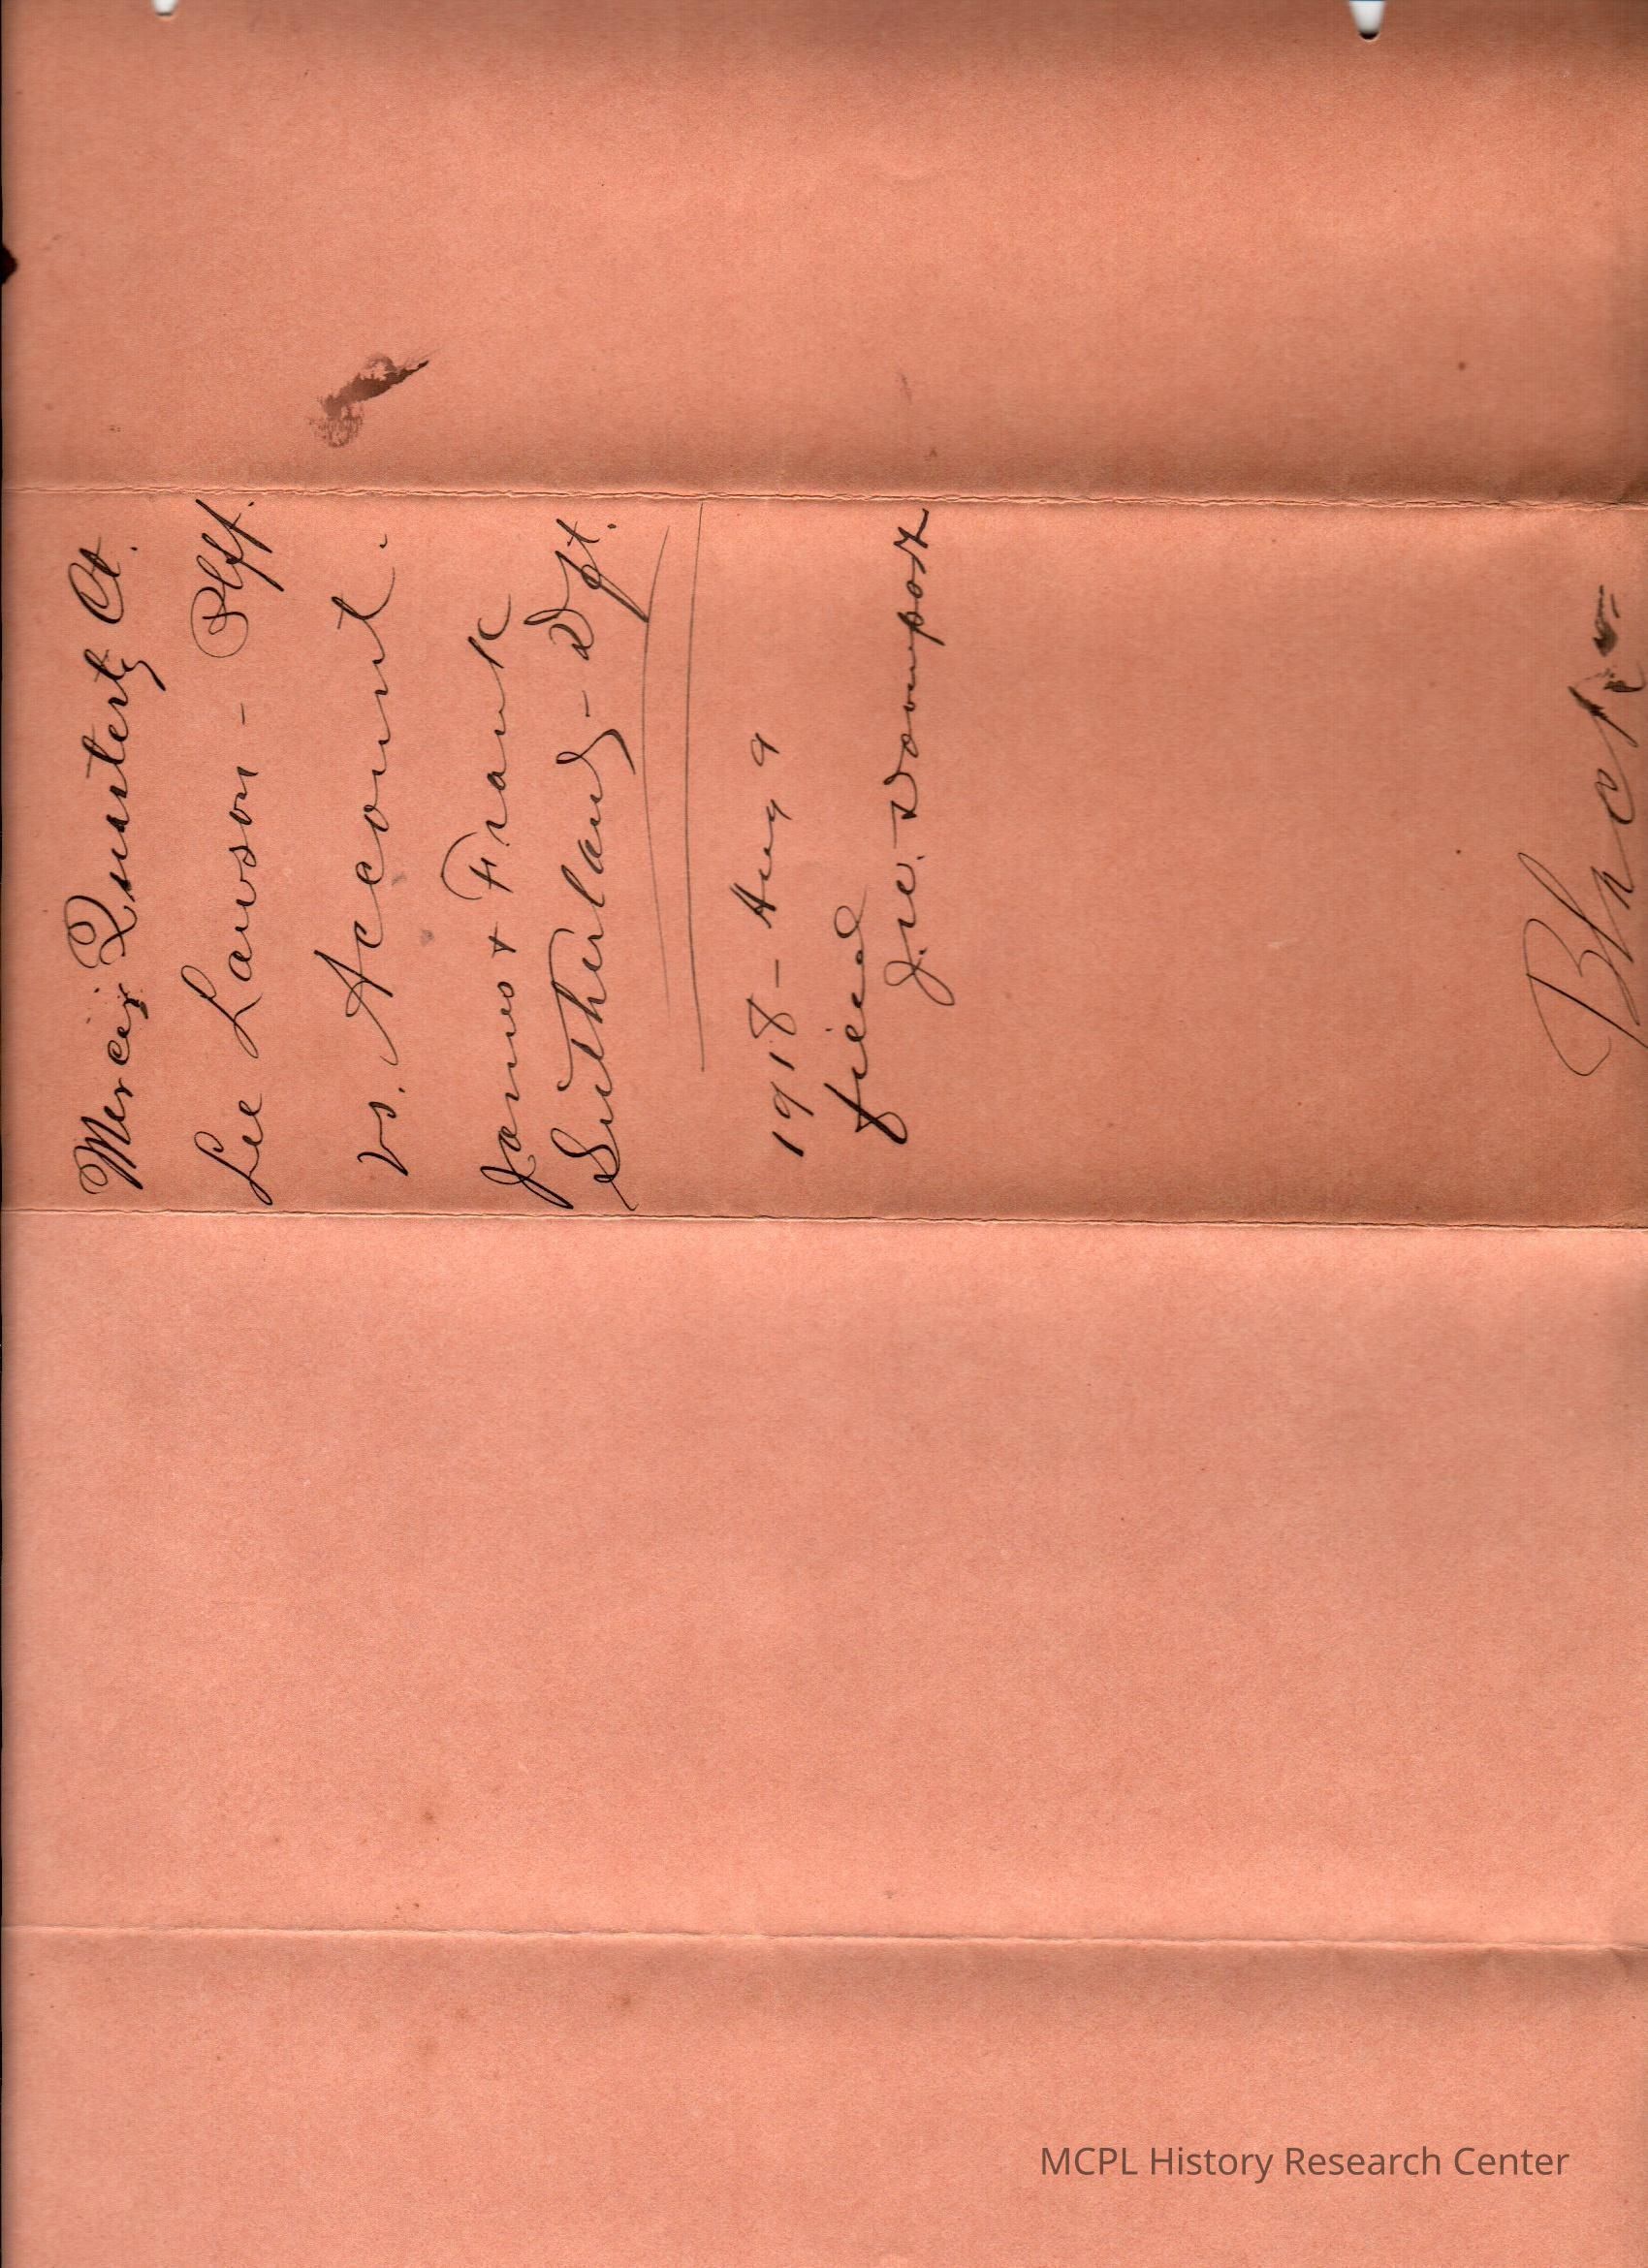 Mercer Quarterly Ct.
Lee Lawson - Plff.
vs. Account.
James + Frank
Sutherland - Dft.
1918 - Aug 9
filed
J. W.
Black
MCPL History Research Center